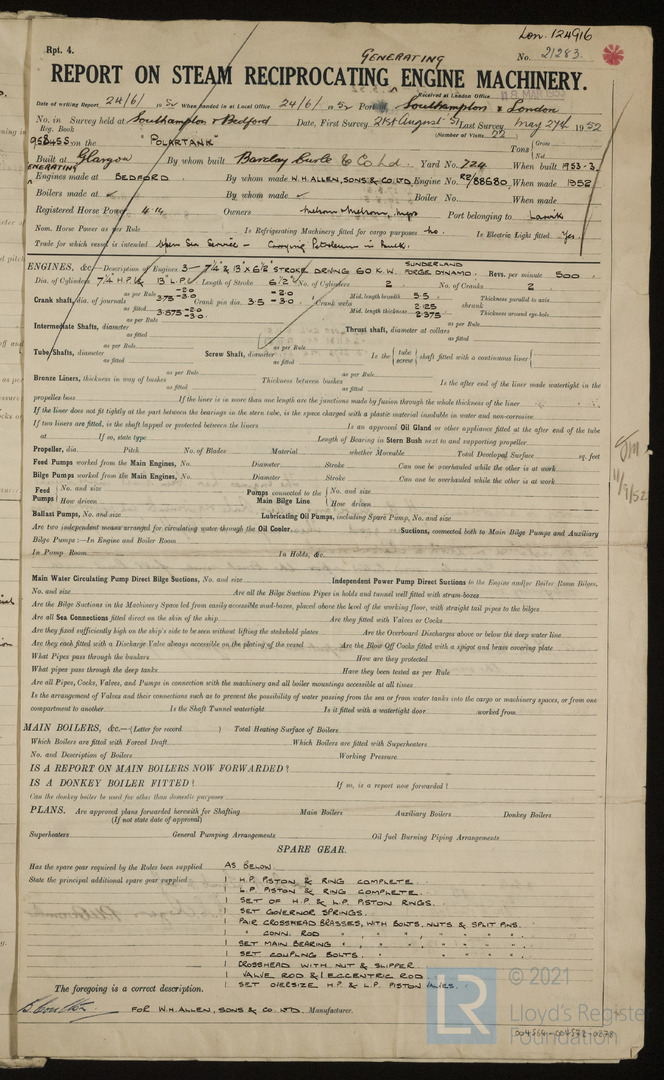 Lon. 124916
Rpt. 4.
No. 21283.
GENERATING
REPORT ON STEAM RECIPROCATING ENGINE MACHINERY.
Received at London Office
Date of writing Report 24/6/1952 When handed in at Local Office 24/6/1952 Port of Southampton & London
No. in Survey held at Southampton & Bedford Date, First Survey 21st August 51 Last Survey May 27th 1952
Reg. Book (Number of Visits 22)
on the "POLARTANK" Tons { Gross Net
Built at Glasgow By whom built Barclay Curle & Co Ld. Yard No. 724 When built 1953-3
GENERATING
Engines made at BEDFORD By whom made W.H. ALLEN, SONS & CO LTD Engine No. R2/88680 When made 1952
Boilers made at ✓ By whom made ✓ Boiler No. When made
Registered Horse Power Owners Port belonging to Larvik
Nom. Horse Power as per Rule Is Refrigerating Machinery fitted for cargo purposes No. Is Electric Light fitted Yes.
Trade for which vessel is intended Open Sea Service - Carrying Petroleum in Bulk.
ENGINES, &c.—Description of Engines 3 - 7¼" & 13" x 6½" STROKE DRIVING 60 K.W. SUNDERLAND FORGE DYNAMO. Revs. per minute 500
Dia. of Cylinders 7¼ H.P. & 13" L.P. Length of Stroke 6½" No. of Cylinders 2 No. of Cranks 2
Crank shaft, dia. of journals as per Rule 3.75 -2.0 -3.0 Crank pin dia. 3.5 -2.0 -3.0 Crank webs Mid. length breadth 5.5 Thickness parallel to axis
as fitted 3.875 -2.0 -3.0 Mid. length thickness 2.125 2.375 shrunk Thickness around eye-hole
Intermediate Shafts, diameter as per Rule as fitted Thrust shaft, diameter at collars as per Rule as fitted
Tube Shafts, diameter as per Rule as fitted Screw Shaft, diameter as per Rule as fitted Is the { tube screw } shaft fitted with a continuous liner {
Bronze Liners, thickness in way of bushes as per Rule as fitted Thickness between bushes as per Rule as fitted Is the after end of the liner made watertight in the
propeller boss If the liner is in more than one length are the junctions made by fusion through the whole thickness of the liner
If the liner does not fit tightly at the part between the bearings in the stern tube, is the space charged with a plastic material insoluble in water and non-corrosive
If two liners are fitted, is the shaft lapped or protected between the liners Is an approved Oil Gland or other appliance fitted at the after end of the tube
at If so, state type Length of Bearing in Stern Bush next to and supporting propeller
Propeller, dia. Pitch No. of Blades Material whether Moveable Total Developed Surface sq. feet
Feed Pumps worked from the Main Engines, No. Diameter Stroke Can one be overhauled while the other is at work
Bilge Pumps worked from the Main Engines, No. Diameter Stroke Can one be overhauled while the other is at work
Feed Pumps { No. and size Pumps connected to the Main Bilge Line { No. and size
How driven How driven
Ballast Pumps, No. and size Lubricating Oil Pumps, including Spare Pump, No. and size
Are two independent means arranged for circulating water through the Oil Cooler Suctions, connected both to Main Bilge Pumps and Auxiliary
Bilge Pumps :—In Engine and Boiler Room
In Pump Room In Holds, &c.
Main Water Circulating Pump Direct Bilge Suctions, No. and size Independent Power Pump Direct Suctions to the Engine and/or Boiler Room Bilges,
No. and size Are all the Bilge Suction Pipes in holds and tunnel well fitted with strum-boxes
Are the Bilge Suctions in the Machinery Space led from easily accessible mud-boxes, placed above the level of the working floor, with straight tail pipes to the bilges
Are all Sea Connections fitted direct on the skin of the ship Are they fitted with Valves or Cocks
Are they fixed sufficiently high on the ship's side to be seen without lifting the stokehold plates Are the Overboard Discharges above or below the deep water line
Are they each fitted with a Discharge Valve always accessible on the plating of the vessel Are the Blow Off Cocks fitted with a spigot and brass covering plate
What Pipes pass through the bunkers How are they protected
What pipes pass through the deep tanks Have they been tested as per Rule
Are all Pipes, Cocks, Valves, and Pumps in connection with the machinery and all boiler mountings accessible at all times
Is the arrangement of Valves and their connections such as to prevent the possibility of water passing from the sea or from water tanks into the cargo or machinery spaces, or from one
compartment to another Is the Shaft Tunnel watertight Is it fitted with a watertight door worked from
MAIN BOILERS, &c.—(Letter for record ) Total Heating Surface of Boilers
Which Boilers are fitted with Forced Draft Which Boilers are fitted with Superheaters
No. and Description of Boilers Working Pressure
IS A REPORT ON MAIN BOILERS NOW FORWARDED?
IS A DONKEY BOILER FITTED? If so, is a report now forwarded?
Can the donkey boiler be used for other than domestic purposes
PLANS. Are approved plans forwarded herewith for Shafting Main Boilers Auxiliary Boilers Donkey Boilers
(If not state date of approval)
Superheaters General Pumping Arrangements Oil fuel Burning Piping Arrangements
SPARE GEAR.
Has the spare gear required by the Rules been supplied AS BELOW.
State the principal additional spare gear supplied 1 H.P. PISTON & RING COMPLETE.
1 L.P. PISTON & RING COMPLETE.
1 SET OF H.P. & L.P. PISTON RINGS.
1 SET GOVERNOR SPRINGS.
1 PAIR CROSSHEAD BRASSES, WITH BOLTS, NUTS & SPLIT PINS.
1 " CONN. ROD " " " " "
1 SET MAIN BEARING " " " " "
1 SET COUPLING BOLTS. " " " "
1 CROSSHEAD WITH NUT & SLIPPER
1 VALVE ROD & 1 ECCENTRIC ROD
1 SET OVERSIZE H.P. & L.P. PISTON VALVES.
The foregoing is a correct description.
FOR W.H. ALLEN, SONS & CO. LTD. Manufacturer.
11/9/52
LR
© 2021
Lloyd's Register
Foundation
004564-004572-0278